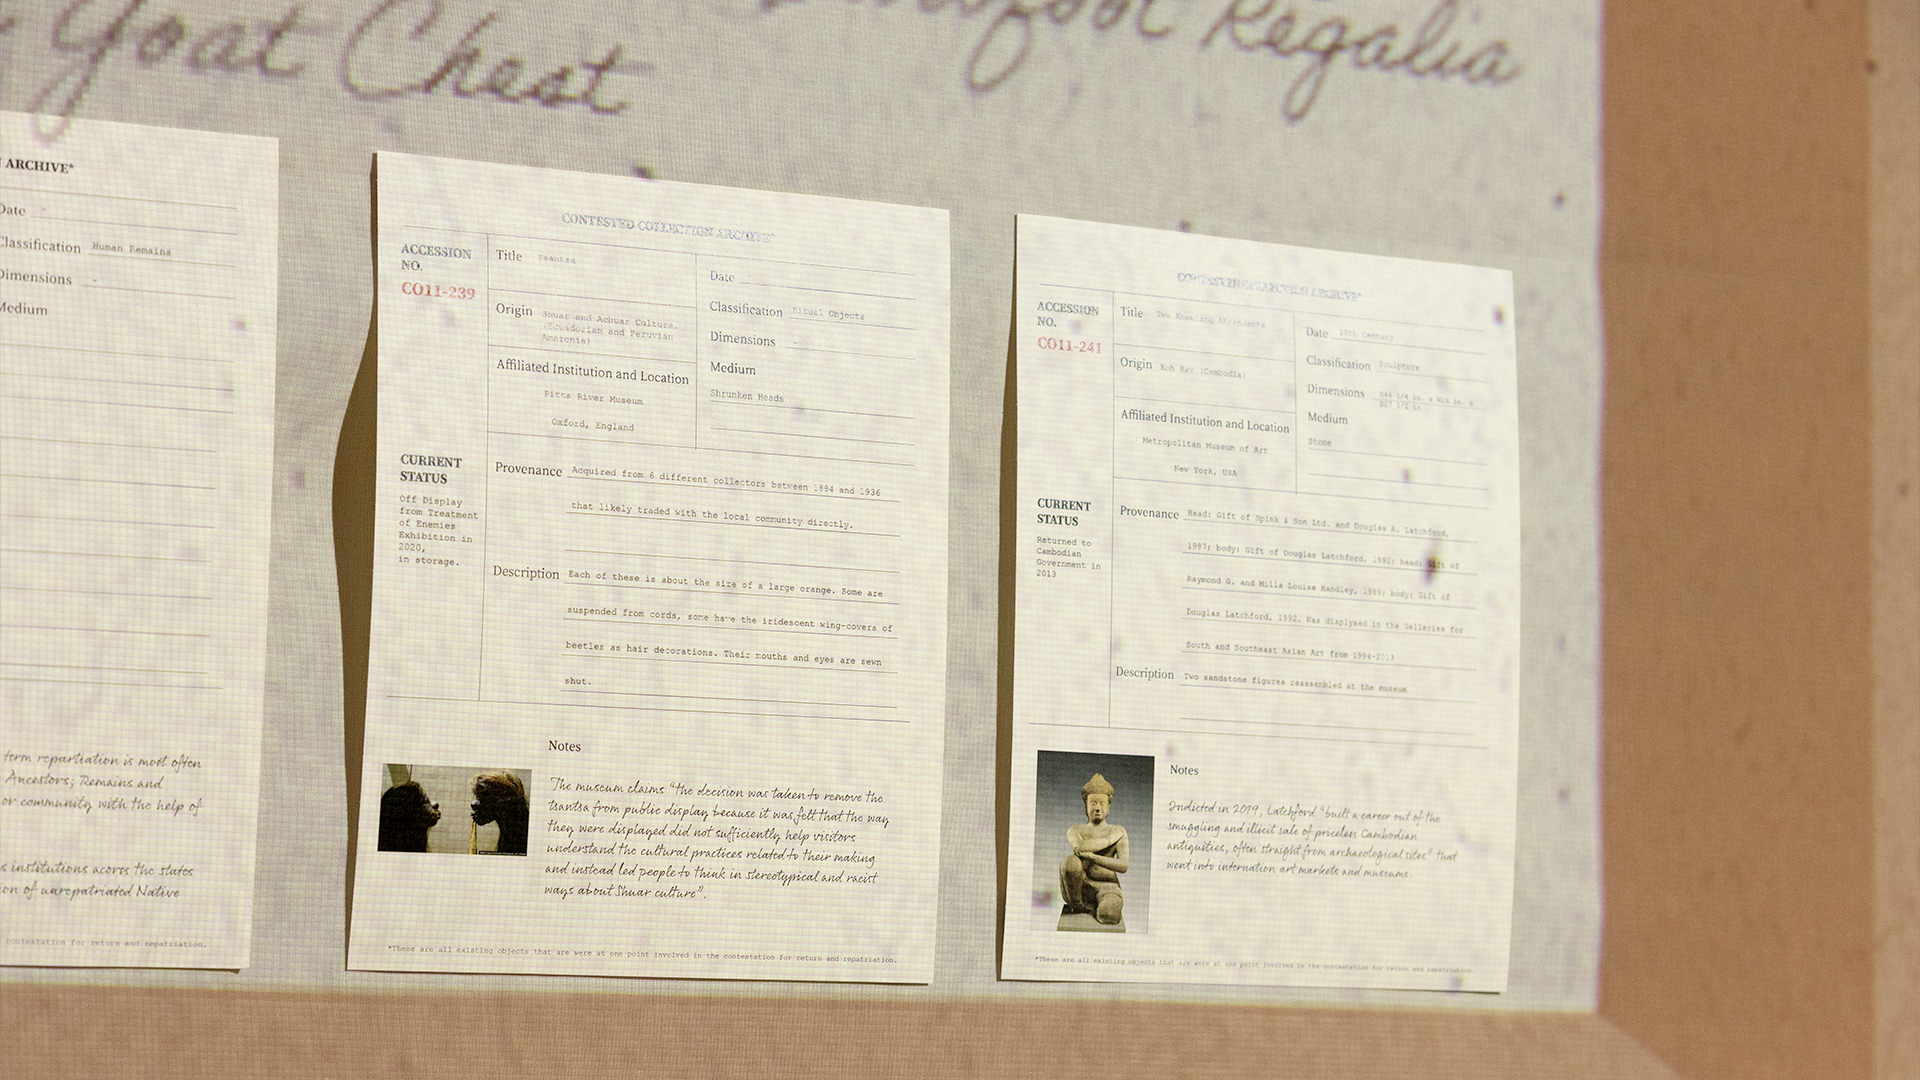 Goat Chest
Regalia
ARCHIVE*
Date -
Classification Human Remains
Dimensions -
Medium
term repartiation is most often
Ancestors; Remains and
or community with the help of
institutions acorss the states
of unrepatriated Native
contestation for return and repatriation.
CONTESTED COLLECTION ARCHIVE*
ACCESSION
NO.
CO11-239
Title Tsantsa
Origin Shuar and Achuar Culture.
(Ecuadorian and Peruvian
Amazonia)
Affiliated Institution and Location
Pitts River Museum
Oxford, England
Date
Classification Ritual Objects
Dimensions -
Medium
Shrunken Heads
CURRENT
STATUS
Off Display
from Treatment
of Enemies
Exhibition in
2020,
in storage.
Provenance Acquired from 6 different collectors between 1884 and 1936
that likely traded with the local community directly.
Description Each of these is about the size of a large orange. Some are
suspended from cords, some have the iridescent wing-covers of
beetles as hair decorations. Their mouths and eyes are sewn
shut.
Notes
The museum claims "the decision was taken to remove the
tsantsa from public display because it was felt that the way
they were displayed did not sufficiently help visitors
understand the cultural practices related to their making
and instead led people to think in stereotypical and racist
ways about Shuar culture".
*These are all existing objects that are were at one point involved in the contestation for return and repatriation.
CONTESTED COLLECTION ARCHIVE*
ACCESSION
NO.
CO11-241
Title Two Kneeling Attendants
Origin Koh Ker (Cambodia)
Affiliated Institution and Location
Metropolitan Museum of Art
New York, USA
Date 10th Century
Classification Sculpture
Dimensions
Medium
Stone
CURRENT
STATUS
Returned to
Cambodian
Government in
2013
Provenance Head: Gift of Spink & Son Ltd. and Douglas A. Latchford,
1987; body: Gift of Douglas Latchford, 1992; head: Gift of
Raymond G. and Milla Louise Handley, 1989; body: Gift of
Douglas Latchford, 1992. Was displyaed in the Galleries for
South and Southeast Asian Art from 1994-2013
Description Two sandstone figures reassembled at the museum
Notes
Indicted in 2019, Latchford "built a career out of the
smuggling and illicit sale of priceless Cambodian
antiquities, often straight from archaeological sites" that
went into internation art markets and museums.
*These are all existing objects that are were at one point involved in the contestation for return and repatriation.